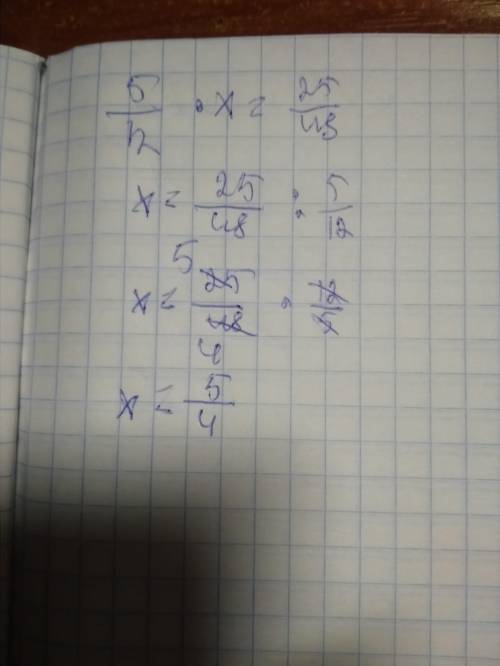 5/12 · x = 25/48
x = 25/48 : 5/12
x = 5 25/48 4 · 12/5
x = 5/4